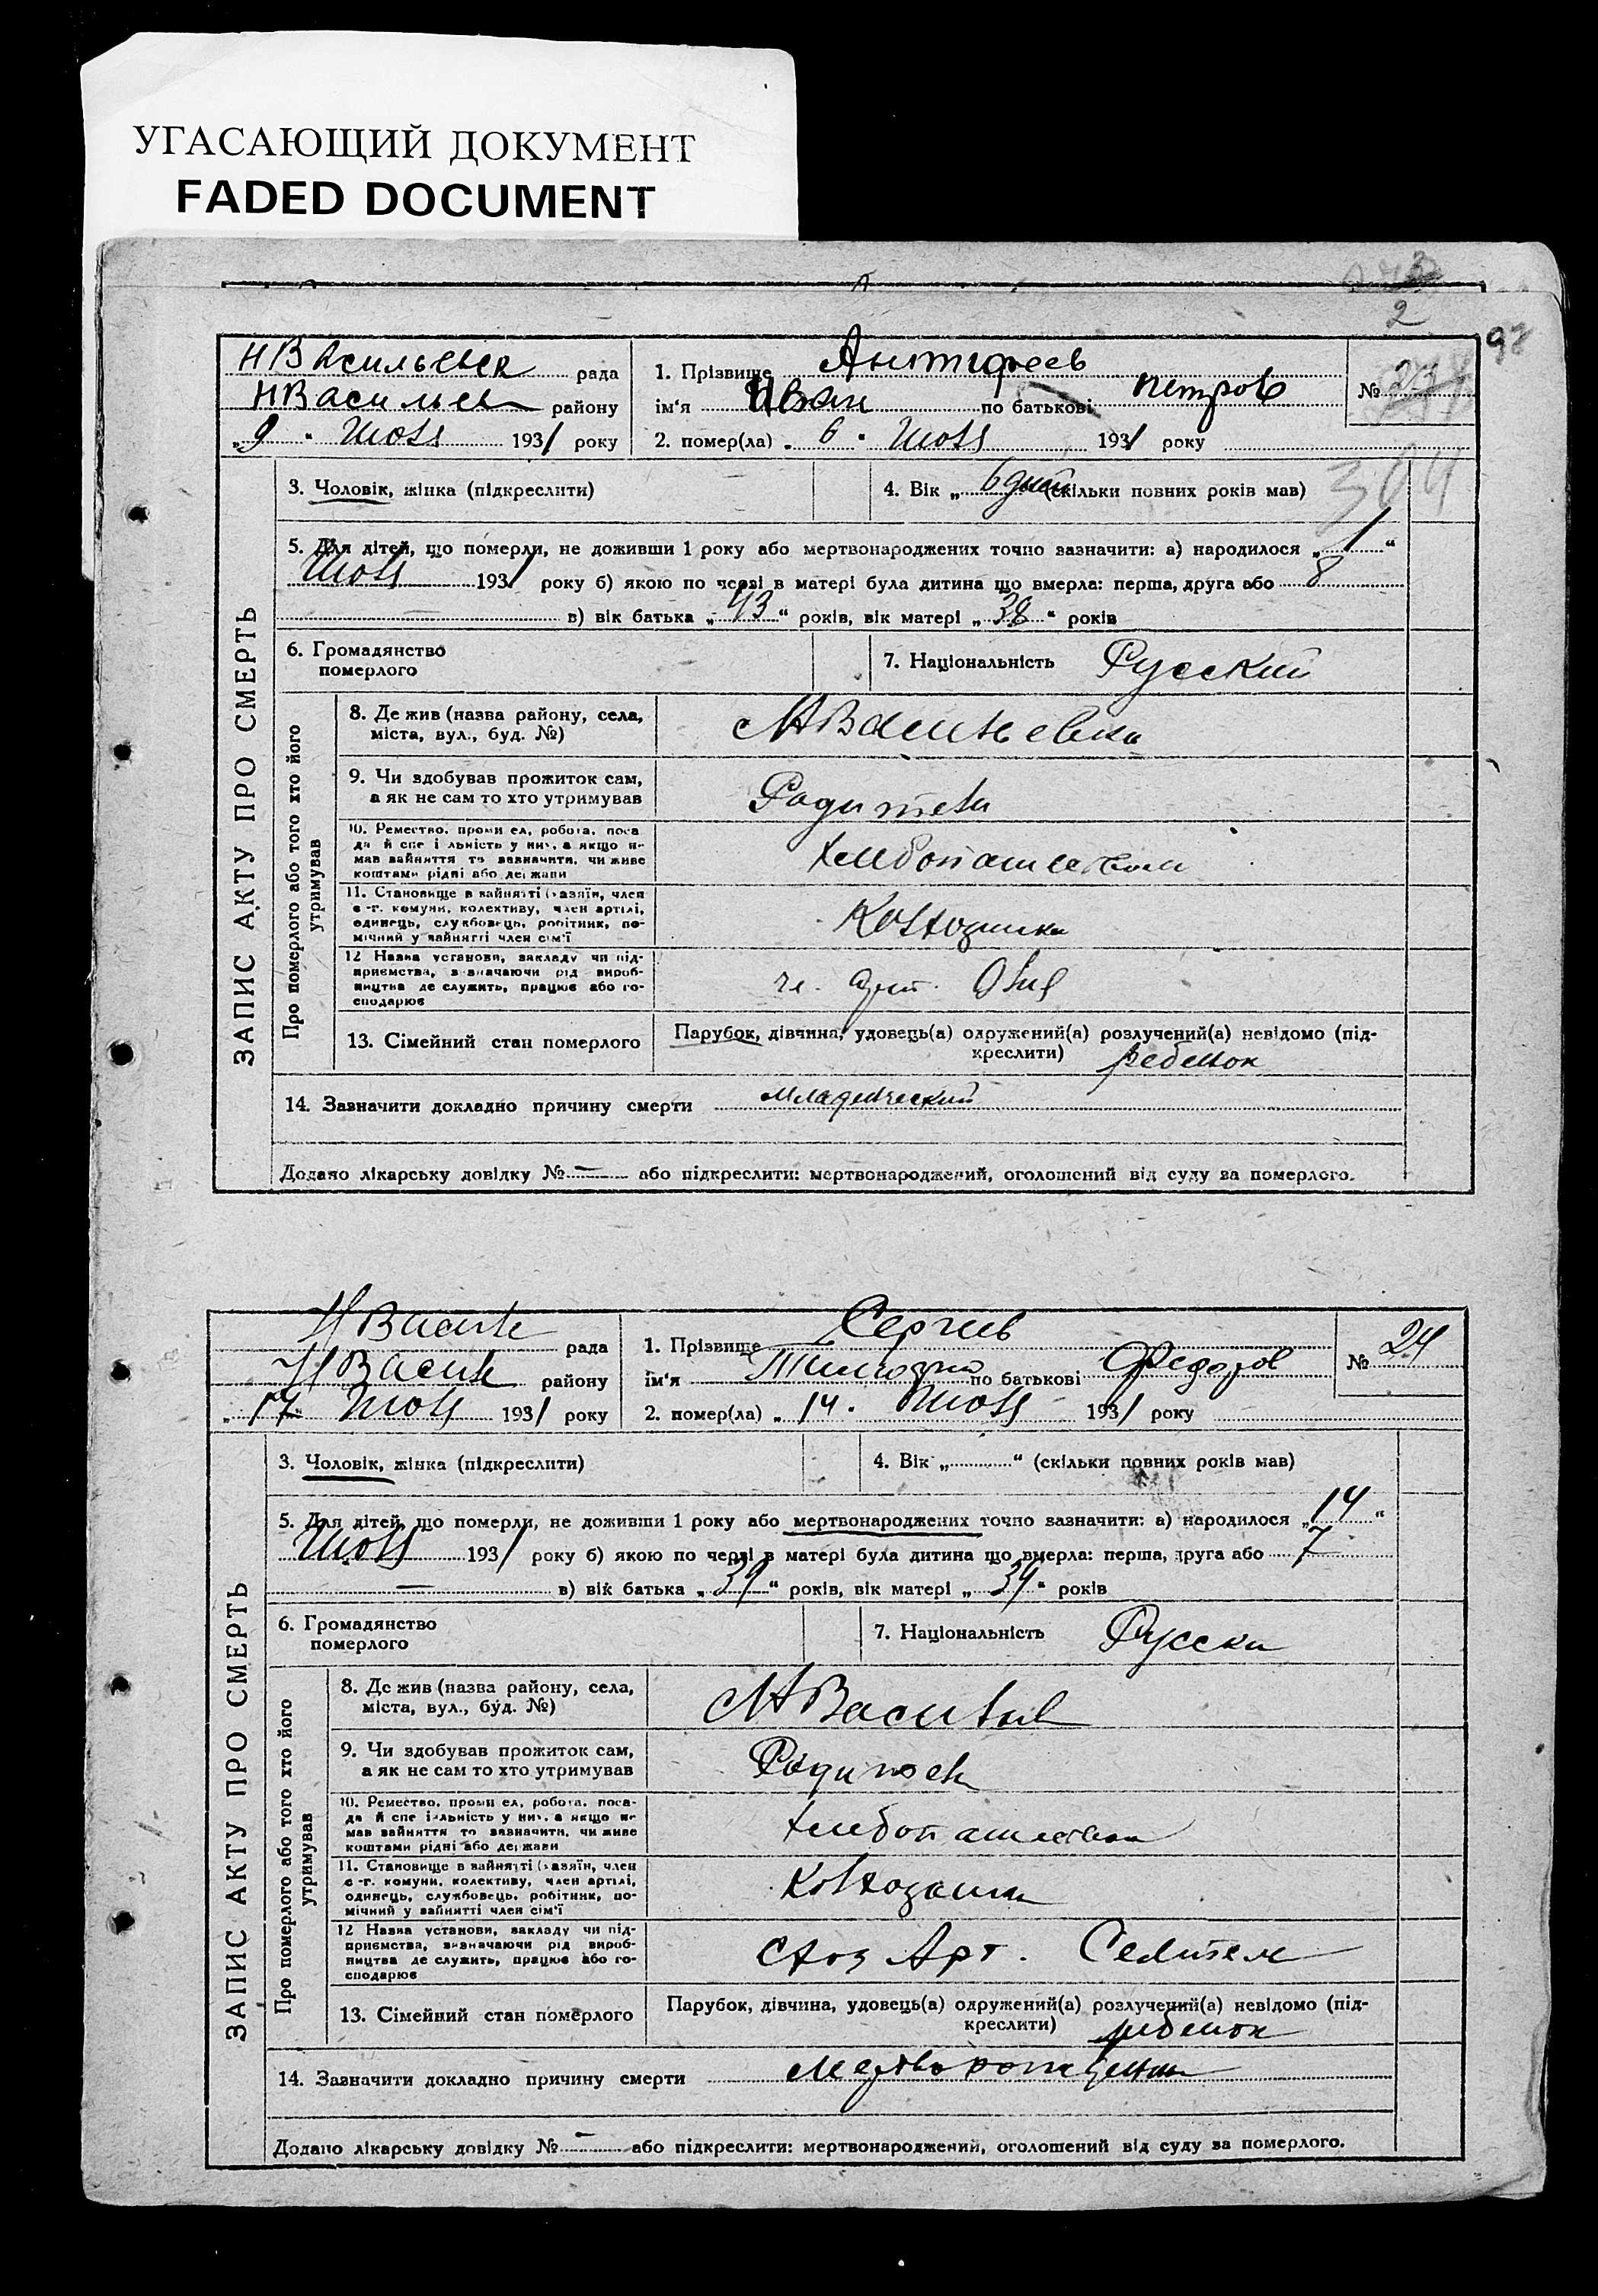 УГАСАЮЩИЙ ДОКУМЕНТ
FADED DOCUMENT
2
97
НВасильевка рада
НВасильев району
„9“ Июля 1931 року
1. Прізвище Антифеев
ім'я Иван по батькові Петров
2. помер(ла) „6“ Июля 1931 року
№ 23
304
ЗАПИС АКТУ ПРО СМЕРТЬ
3. Чоловік, жінка (підкреслити)
4. Вік „6 дней (скільки повних років мав)
5. Для дітей, що померли, не доживши 1 року або мертвонароджених точно зазначити: а) народилося „1“
Июля 1931 року б) якою по черзі в матері була дитина що вмерла: перша, друга або 8
— в) вік батька „43“ років, вік матері „38“ років
6. Громадянство
померлого
7. Національність Русский
Про померлого або того хто його
утримував
8. Де жив (назва району, села,
міста, вул., буд. №)
НВасильевка
9. Чи здобував прожиток сам,
а як не сам то хто утримував
Родители
10. Ремество, промисел, робота, поса
да й спеціяльність у них, а якщо не
мав зайняття то зазначити, чи живе
коштами рідні або держави
Хлебопашеством
11. Становище в зайнятті (хазяїн, член
с.-г. комуни, колективу, член артілі,
одинець, службовець, робітник, по-
мічний у зайнятті член сім'ї
Колхозники
12 Назва установи, закладу чи під-
приємства, зазначаючи рід вироб-
ництва де служить, працює або го-
сподарює
13. Сімейний стан померлого
Парубок, дівчина, удовець(а) одружений(а) розлучений(а) невідомо (під-
креслити) ребенок
14. Зазначити докладно причину смерти младенческий
Додано лікарську довідку № — або підкреслити: мертвонароджений, оголошений від суду за померлого.
НВасиль рада
НВасиль району
„17“ Июля 1931 року
1. Прізвище Сергиев
ім'я Тимофей по батькові Федоров
2. помер(ла) „14. Июля 1931 року
№ 24
ЗАПИС АКТУ ПРО СМЕРТЬ
3. Чоловік, жінка (підкреслити)
4. Вік „ “ (скільки повних років мав)
5. Для дітей, що померли, не доживши 1 року або мертвонароджених точно зазначити: а) народилося „14“
Июля 1931 року б) якою по черзі в матері була дитина що вмерла: перша, друга або 7
— в) вік батька „39“ років, вік матері „34“ років
6. Громадянство
померлого
7. Національність Русски
Про померлого або того хто його
утримував
8. Де жив (назва району, села,
міста, вул., буд. №)
НВасильев
9. Чи здобував прожиток сам,
а як не сам то хто утримував
Родители
10. Ремество, промисел, робота, поса-
да й спеціяльність у них, а якщо не
мав зайняття то зазначити, чи живе
коштами рідні або держави
Хлебопашеством
11. Становище в зайнятті (хазяїн, член
с.-г. комуни, колективу, член артілі,
одинець, службовець, робітник, по-
мічний у зайнятті член сім'ї
Колхозники
12 Назва установи, закладу чи під-
приємства, зазначаючи рід вироб-
ництва де служить, працює або го-
сподарює
Схоз Арт.
13. Сімейний стан померлого
Парубок, дівчина, удовець(а) одружений(а) розлучений(а) невідомо (під-
креслити) ребенок
14. Зазначити докладно причину смерти Мертворожденный
Додано лікарську довідку № — або підкреслити: мертвонароджений, оголошений від суду за померлого.